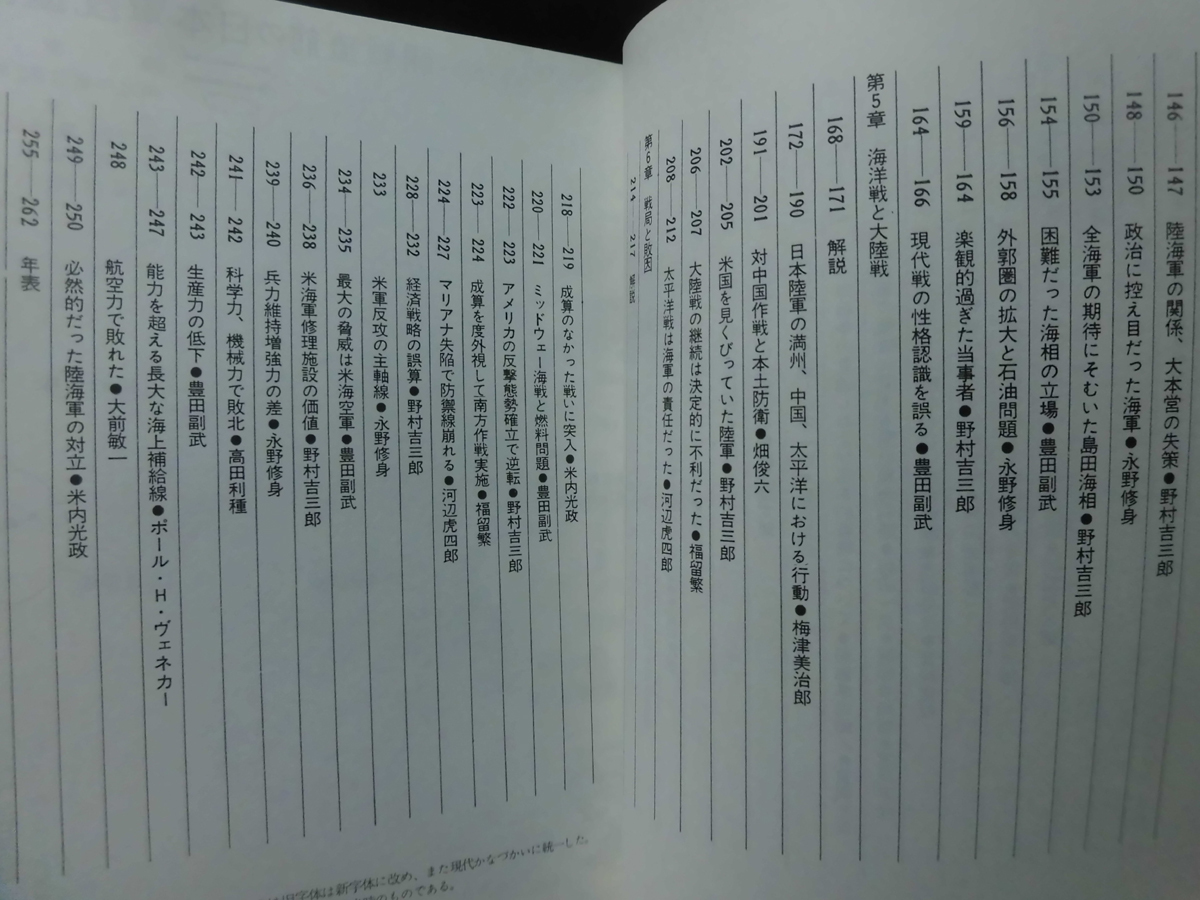 146——147 陸海軍の関係、大本営の失策●野村吉三郎
148——150 政治に控え目だった海軍●永野修身
150——153 全海軍の期待にそむいた島田海相●野村吉三郎
154——155 困難だった海相の立場●豊田副武
156——158 外郭圏の拡大と石油問題●永野修身
159——164 楽観的過ぎた当事者●野村吉三郎
164——166 現代戦の性格認識を誤る●豊田副武
第5章 海洋戦と大陸戦
168——171 解説
172——190 日本陸軍の満州、中国、太平洋における行動●梅津美治郎
191——201 対中国作戦と本土防衛●畑俊六
202——205 米国を見くびっていた陸軍●野村吉三郎
206——207 大陸戦の継続は決定的に不利だった●福留繁
208——212 太平洋戦は海軍の責任だった●河辺虎四郎
第6章 戦局と敗因
214——217 解説
218——219 成算のなかった戦いに突入●米内光政
220——221 ミッドウェー海戦と燃料問題●豊田副武
222——223 アメリカの反撃態勢確立で逆転●野村吉三郎
223——224 成算を度外視して南方作戦実施●福留繁
224——227 マリアナ失陥で防禦線崩れる●河辺虎四郎
228——232 経済戦略の誤算●野村吉三郎
233 米軍反攻の主軸線●永野修身
234——235 最大の脅威は米海空軍●豊田副武
236——238 米海軍修理施設の価値●野村吉三郎
239——240 兵力維持増強力の差●永野修身
241——242 科学力、機械力で敗北●高田利種
242——243 生産力の低下●豊田副武
243——247 能力を超える長大な海上補給線●ポール・H・ヴェネカー
248 航空力で敗れた●大前敏一
249——250 必然的だった陸海軍の対立●米内光政
255——262 年表
旧字体は新字体に改め、また現代かなづかいに統一した。
のものである。